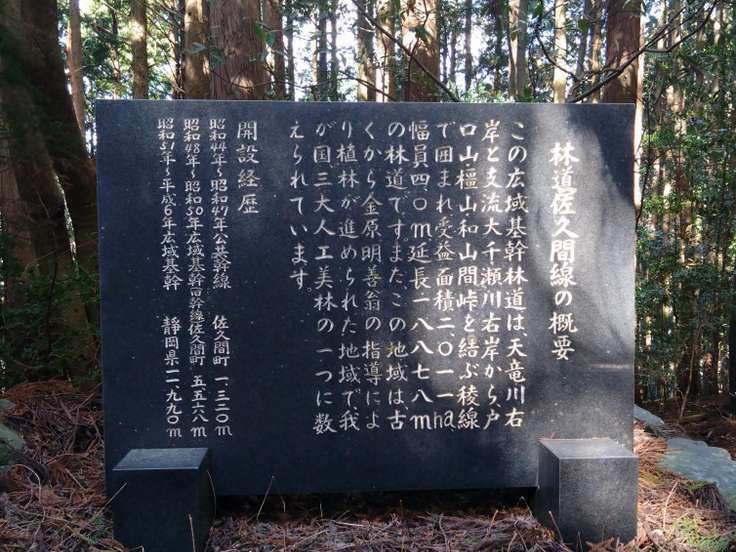 林道佐久間線の概要
この広域基幹林道は、天竜川右
岸と支流大千瀬川右岸から、戸
口山檀山和山間峠を結ぶ稜線
で囲まれ受益面積二〇一一ha
幅員四.〇m延長一八八七八m
の林道です。また、この地域は、古
くから金原明善翁の指導によ
り植林が進められた地域で、我
が国三大人工美林の一つに数
えられています。
開設経歴
昭和44年~昭和47年公共幹線 佐久間町 一、三二〇m
昭和48年~昭和50年広域基幹旧幹線佐久間町 五五六八m
昭和51年~平成6年広域基幹 静岡県一一、九九〇m